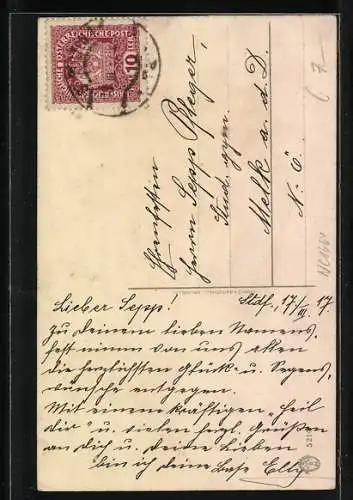 KAISERLICHE KÖNIGLICHE ÖSTERREICHISCHE POST
10 HELLER
Herrn Sepp Pfleger,
Stud. gym.
Melk a. d. D.
N. Ö.
Lieber Sepp!
Stdf., 17/III. 17.
Zu deinem lieben Namens-
fest nimm von uns allen
die herzlichsten Glück- u. Segens-
wünsche entgegen.
Mit einem kräftigen „Heil
dir" u. vielen hrzl. Grüßen
an dich u. deine Lieben
bin ich deine Base Elly
521